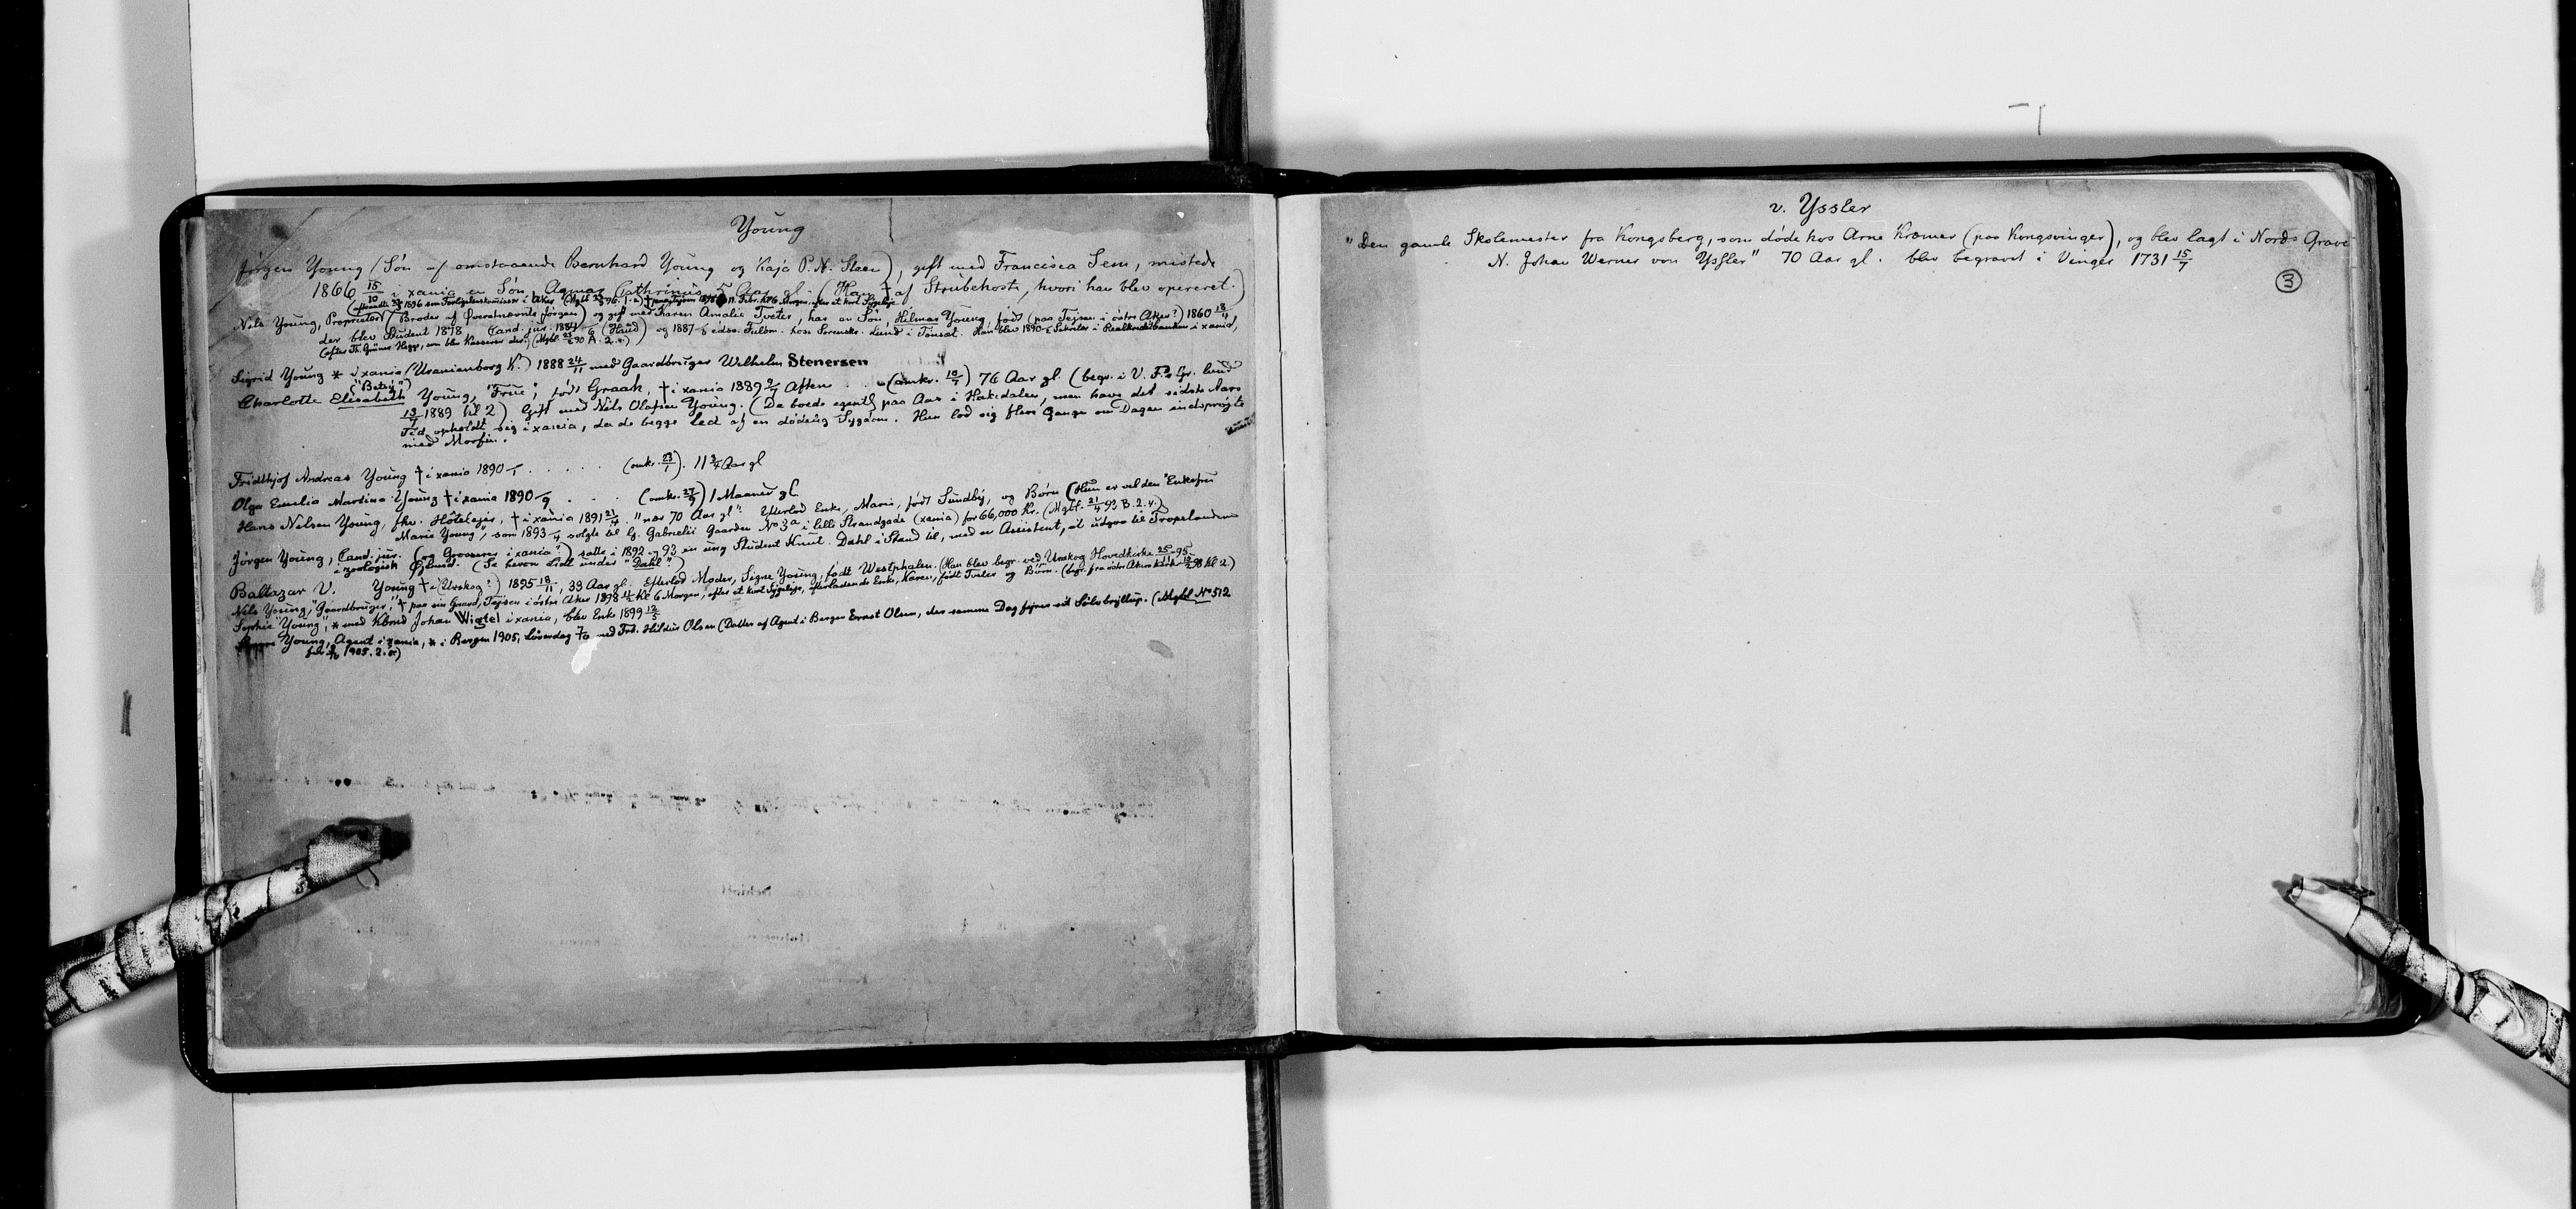 Young
Jörgen Young (Sön af omstaaende Bernhard Young og Kaja P. N. Steen), gift med Francisca Sem, mistede
1866 15/10 i xania en Sön, Agmar Cathrinus, 5 Aar gl. (Han † af Strubehoste, hvori han blev opereret.)
1896 som Forligelseskomissær i Aker (Mgbl. 1896. 1-2) 11 Febr. Kl 6 Morgen, efter et kort Sygeleje
Nils Young, Proprietær (Broder af forannævnte Jörgen) og gift med Karen Amalie Tveter, har en Sön, Hilmar Young, födt (paa Tejsen i östre Aker?) 1860 18/4,
der blev Student 1878, Cand. jur. 1884 (Haud) og 1887 edsv. Fuldm. hos Sorenskr. Lund i Tönset. Han blev 1890 Sekretær i Realkreditbanken i xania,
(efter Th. Grüner Hegge, som blev Kasserer der.) (Mgbl. 90 A. 2. v.)
Sigrid Young * i xania (Uranienborg K.) 1888 24/11 med Gaardbruger Wilhelm Stenersen
("Betsy")
Charlotte Elisabeth Young, "Frue", född Graah, † i xania 1889 9/7 Aften . . (omkr. 10/7) 76 Aar gl. (begr. i V. F.s Gr. lund
13/7 1889 Kl 2) Gift med Nils Olafsen Young. (De boede egentl. paa Aas i Hakedalen, men have det sidste Aars
Tid opholdt sig i xania, da de begge led af en dödelig Sygdom. Hun lod sig flere Gange om Dagen indspröjte
med Morfin.
Fridthjof Andreas Young † i xania 1890 . . . . . (omkr. 23/1). 11 3/4 Aar gl
Olga Emelia Mardina Young † i xania 1890 . . . (omkr. 27/9) 1 Maaned gl.
Hans Nilsen Young, fhv. Hôtelejer, † i xania 1891 21/4. "nær 70 Aar gl". Efterlod Enke, Marie, född Sundby, og Börn (Hun er vel den "Enkefru
Marie Young", som 1893 solgte til Gabrielsen Gaarden No 3a i lille Strandgade (xania) for 66,000 Kr. (Mgbl. 21/4 93 B. 2. v.)
Jörgen Young, Cand. jur. (og Grosserer i xania?) satte i 1892-93 en ung Student Knut Dahl i Stand til, med en Assistent, at udgaa til Tropelandene
i zoologisk Öjemed. (Se herom lidt under "Dahl")
Baltazar V. Young † i (Urskog?) 1895 18/11, 33 Aar gl. Efterlod Moder, Signe Young, födt Westphalen. (Han blev begr. ved Urskog Hovedkirke 25/11 95
Nils Young, "Gaardbruger", † paa sin Gaard, Tejsen i östre Aker 1898 Kl 6 Morgen, efter et kort Sygeleje, efterladende Enke, Karen, födt Tveter og Börn. (begr. fra östre Akers Kirke 98 Kl 2.)
Sophie "Young", * med Kbmd Johan Wigtel i xania, blev Enke 1899 12/5
Young, Agent i xania, * i Bergen 1905, Löverdag 7/10 med Frk. Hildur Olsen (Datter af Agent i Bergen Ernst Olsen, der samme Dag fejrer sit Sölvbryllup. (Mgbl No 512
1905. 2. v.)
v. Yssler
"Den gamle Skolemester fra Kongsberg, som döde hos Arne Kræmer (paa Kongsvinger), og blev lagt i Nords Grave
N. Johan Werner von Yssler" 70 Aar gl. blev begravet i Vinger 1731 15/7
3